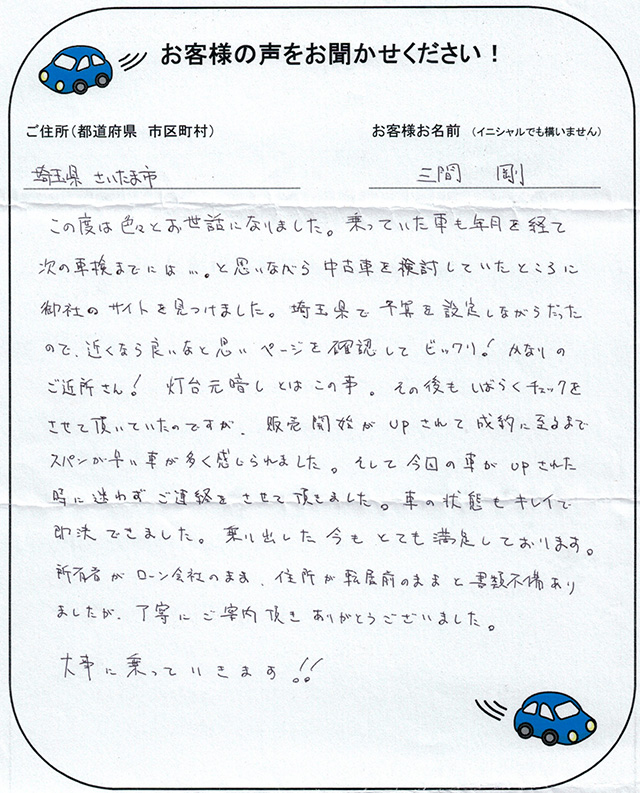 お客様の声をお聞かせください！
ご住所（都道府県 市区町村）
お客様お名前 （イニシャルでも構いません）
埼玉県 さいたま市
三間 剛
この度は色々とお世話になりました。乗っていた車も年月を経て
次の車検までには…。と思いながら中古車を検討していたところに
御社のサイトを見つけました。埼玉県で予算を設定しながらだった
ので、近くなら良いなと思いページを確認してビックリ！かなりの
ご近所さん！灯台元暗しとはこの事。その後もしばらくチェックを
させて頂いていたのですが、販売開始がupされて成約に至るまで
スパンが早い車が多く感じられました。そして今回の車がupされた
時に迷わずご連絡をさせて頂きました。車の状態もキレイで
即決できました。乗り出した今もとても満足しております。
所有者がローン会社のまま、住所が転居前のままと書類不備あり
ましたが、丁寧にご案内頂きありがとうございました。
大事に乗っていきます!!